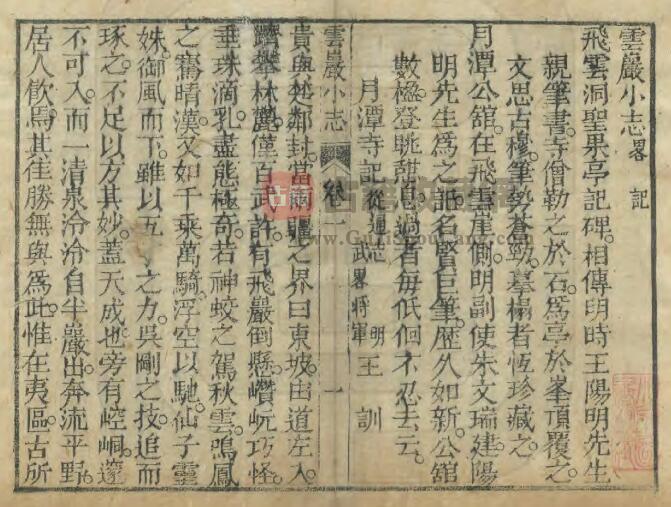 雲巖小志畧　記
飛雲洞聖果亭記碑。相傳明時王陽明先生
親筆書。寺僧勒之於石。爲亭於峯頂覆之。
文思古穆。筆勢蒼勁。摹榻者恆珍藏之。
月潭公舘在飛雲崖側。明副使朱文瑞建。陽
明先生爲之記。名賢巨筆。歷久如新。公舘
數楹。登眺甜息。過者每低佪不忍去云。
月潭寺記從通志　武畧將軍　明　王訓
雲巖小志　卷一　一
貴與楚鄰封。當兩疆之界曰東坡。由道左入
躋攀林麓。僅百武許。有飛巖倒懸。巑岏巧怪。
垂珠滴乳。盡態極奇。若神蛟之駕秋雲。鳴鳳
之騫晴漢。又如千乘萬騎。浮空以馳。仙子靈
姝。御風而下。雖以五丁之力。吳剛之技。追而
琢之。不足以方其妙。蓋天成也。旁有崆峒。邃
不可入。而一清泉泠泠自半巖出。奔流平野。
居人飲焉。其佳勝無與爲比。惟在夷區。古所
古籍
www.Gujishuwang.com